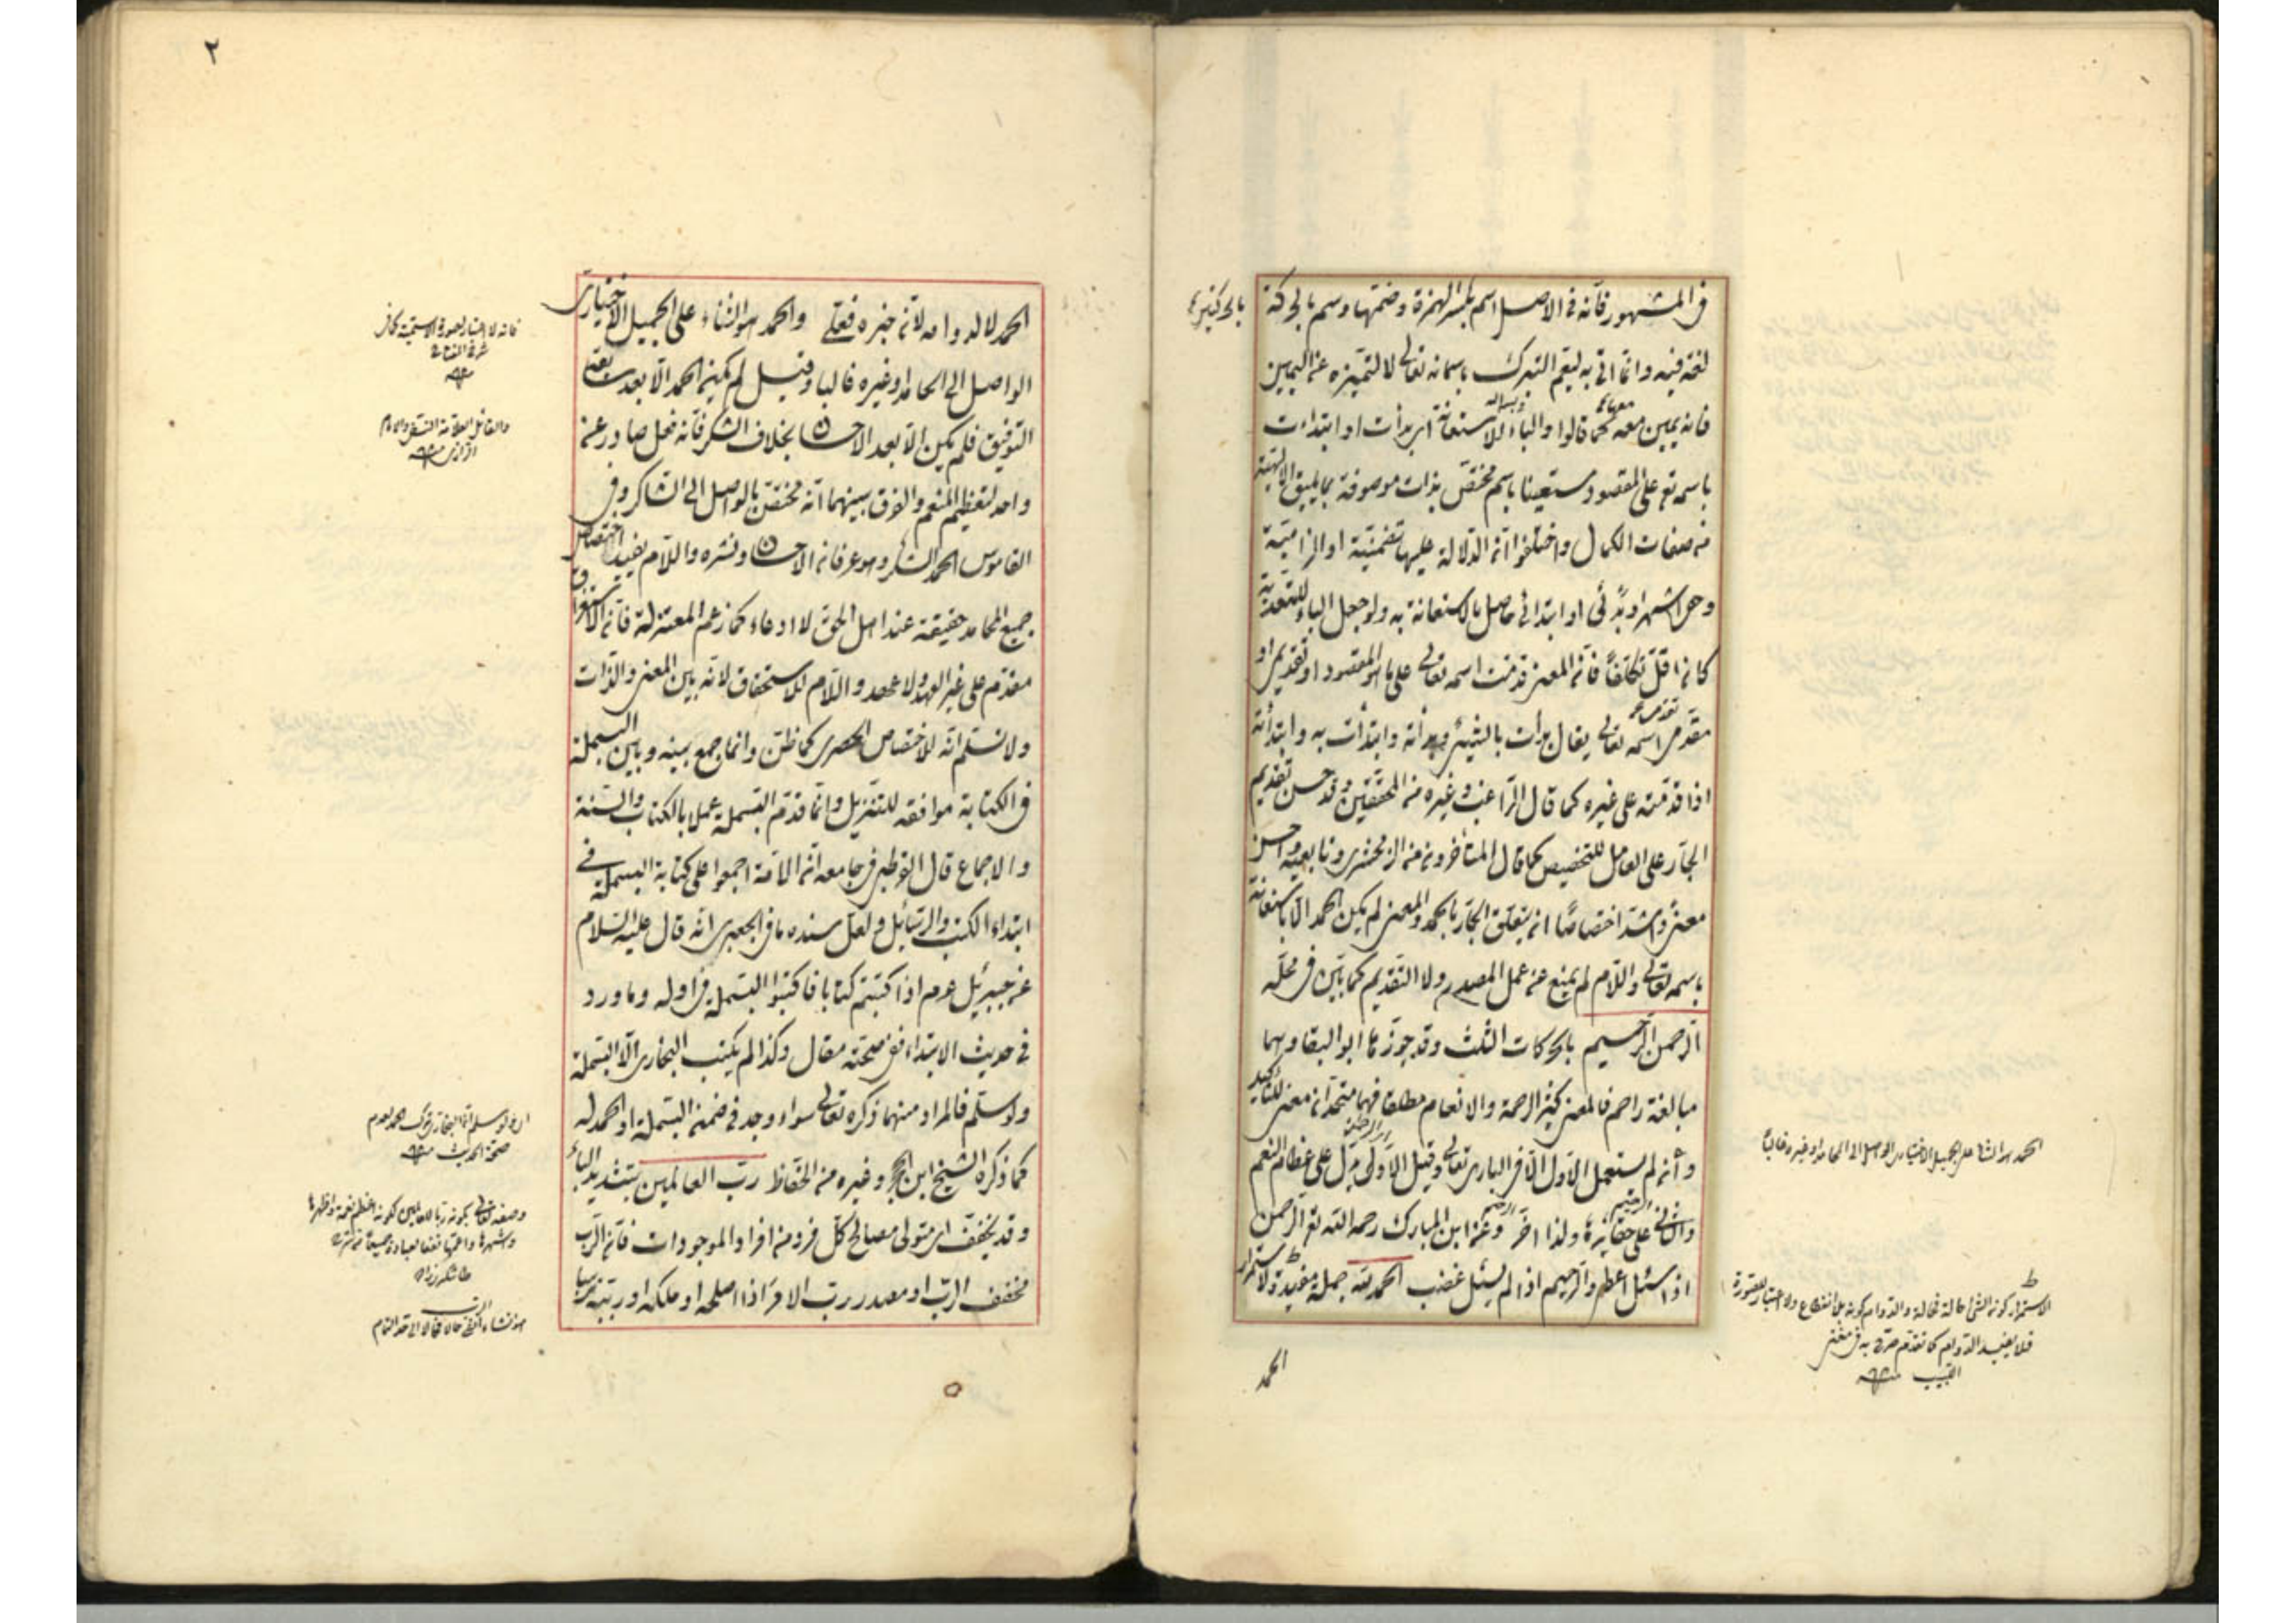 في المشهور فانه في الاصل اسم بكسر الهمزة وضمها وسم بالحركة
لغة فيه وانما اتى به ليعم التبرك باسمائه تعالى لا لتميزه عن اليمين
فانه يمين معه كما قالوا والباء للاستعانة اى بدأت او ابتدات
باسمه تع على المقصود مستعينا باسم مختص بذات موصوفة بما يليق الالهية
من صفات الكمال واختلفوا ان الدلالة عليها تضمنية او التزامية
وهو اشهر او بدئى او ابتدائى حاصل بالاستعانة به ولو جعل الباء للتعدية
كان اقل تكلفا فان المعنى قدمت اسمه تعالى على ما هو المقصود او تقديمى او
مقدمى اسمه تعالى يقال بدأت بالشئ وبدأته وابتدأت به وابتدأته
اذا قدمته على غيره كما قال الراغب وغيره من المحققين وقد حسن تقديم
الجار على العامل للتخصيص كما قال المتأخرون من الزمخشرى وتابعيه واحسن
معنى واشد اختصاصا ان يتعلق الجار بالحمد والمعنى لم يكن الحمد الا باستعانة
باسمه تعالى واللام لم يمنع عن عمل المصدر ولا التقديم كما بين فى محله
الرحمن الرحيم بالحركات الثلث وقد جوزها ابو البقا وهما
مبالغة راحم فالمعنى كثير الرحمة والانعام مطلقا فهما متحدان معنى للتأكيد
وان لم يستعمل الاول الا فى البارى تعالى وقيل الاولى يدل على عظائم النعم
والثانى على حقائرها ولذا اخر وعن ابن المبارك رحمه الله تع الرحمن
اذا سئل اعطى والرحيم اذا لم يسئل غضب الحمد لله جملة مفيدة لاستمرار
الحمد
الحمد هو الثناء على الجميل الاختيارى الواصل الى الحامد او غيره غالبا
الاستمرار كون الشئ حالة فحالة والدوام كونه بلا انقطاع ولا اعتبار للصورة
فلا يفيد الدوام كما تقدم صرح به فى مغنى
اللبيب منه
٢
الحمد لا لدوامه لانه خبره فعلى والحمد هو الثناء على الجميل الاختيارى
الواصل الى الحامد او غيره غالبا وقيل لم يكن الحمد الا بعد
التوفيق فلم يكن الا بعد الاحسان بخلاف الشكر فانه فعل صادر عن
واحد لتعظيم المنعم والفرق بينهما انه مختص بالواصل الى الشاكر وفى
القاموس الحمد الشكر وهو عرفان الاحسان ونشره واللام يفيد اختصاص
جميع المحامد حقيقة عند اهل الحق لا ادعاء كما زعم المعتزلة فان الاستغراق
مقدم على غير العهد ولا عهد واللام للاستحقاق لانه بين المعنى والذات
ولا نسلم انه للاختصاص الحصرى كما ظن وانما جمع بينه وبين البسملة
فى الكتابة موافقه للتنزيل وانما قدم البسملة عملا بالكتاب والسنة
والاجماع قال القرطبى فى جامعه ان الامة اجمعوا على كتابة البسملة فى
ابتداء الكتب والرسائل ولعل سنده ما فى الجعبرى انه قال عليه السلام
عن جبرئيل عم اذا كتبتم كتابا فاكتبوا البسملة فى اوله وما ورد
فى حديث الابتداء ففى صحته مقال وكذا لم يكتب البخارى الا البسملة
ولو سلم فالمراد منهما ذكره تعالى سواء وجد فى ضمن البسملة او الحمد له
كما ذكره الشيخ ابن الحجر وغيره من الحفاظ رب العالمين بتشديد الباء
وقد يخفف اى متولى مصالح كل فرد من افراد الموجودات فان الرب
مخفف الراب او مصدر رب الامر اذا اصلحه او ملكه او ربته
فانه لا اعتبار لصورة الاسمية كما فى
شرح المفتاح
منه
والقائل العلامة النسفى والامام
الرازى منه
اى ولو سلم ان البخارى ترك الحمد لعدم
صحة الحديث منه